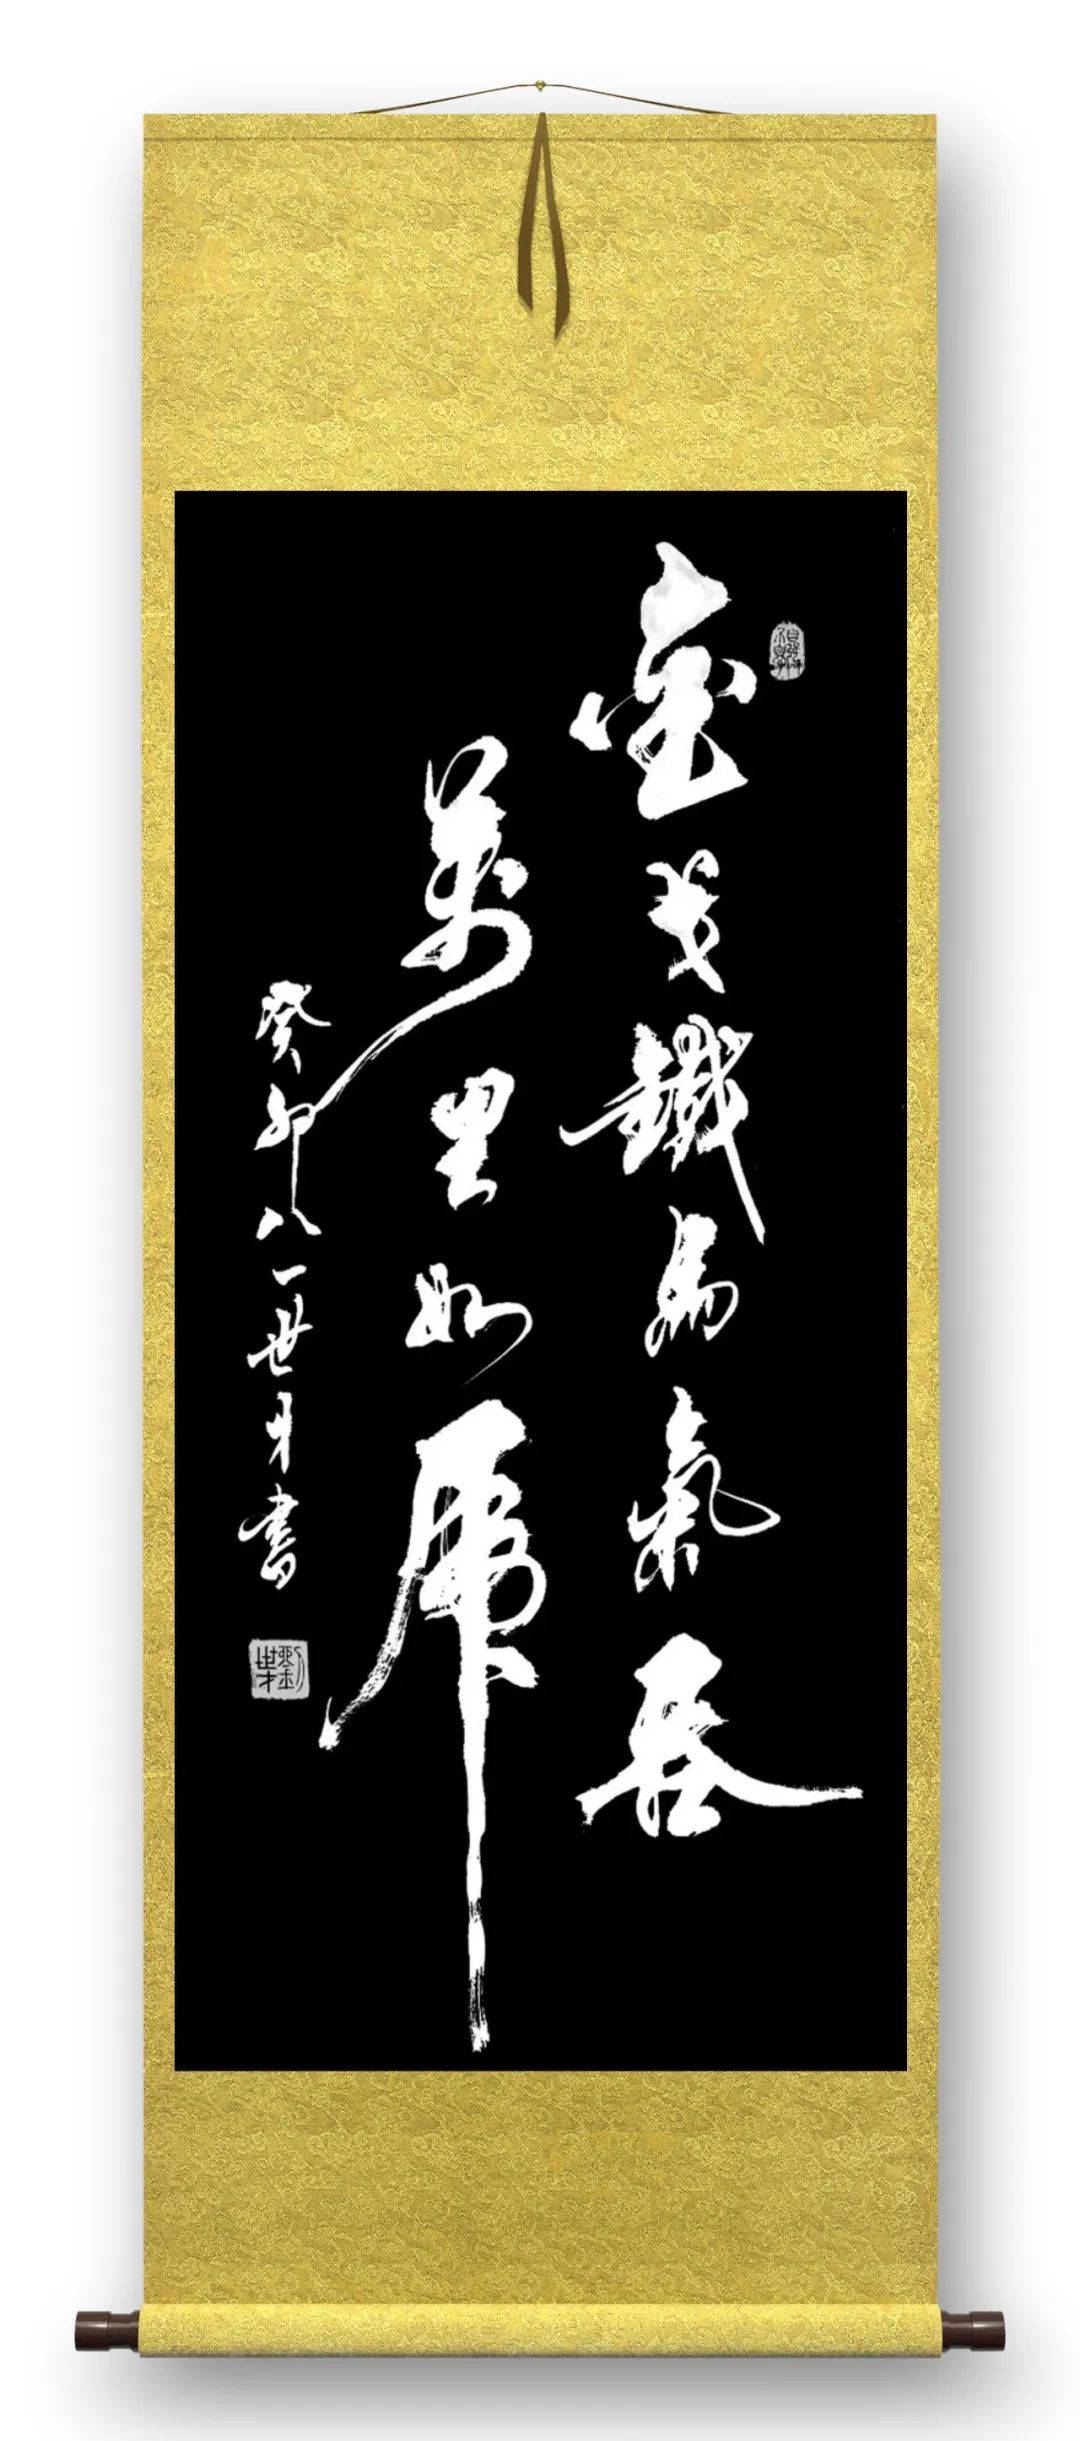 金戈鐵馬氣吞
萬里如虎
癸卯八一世才書
劉世才